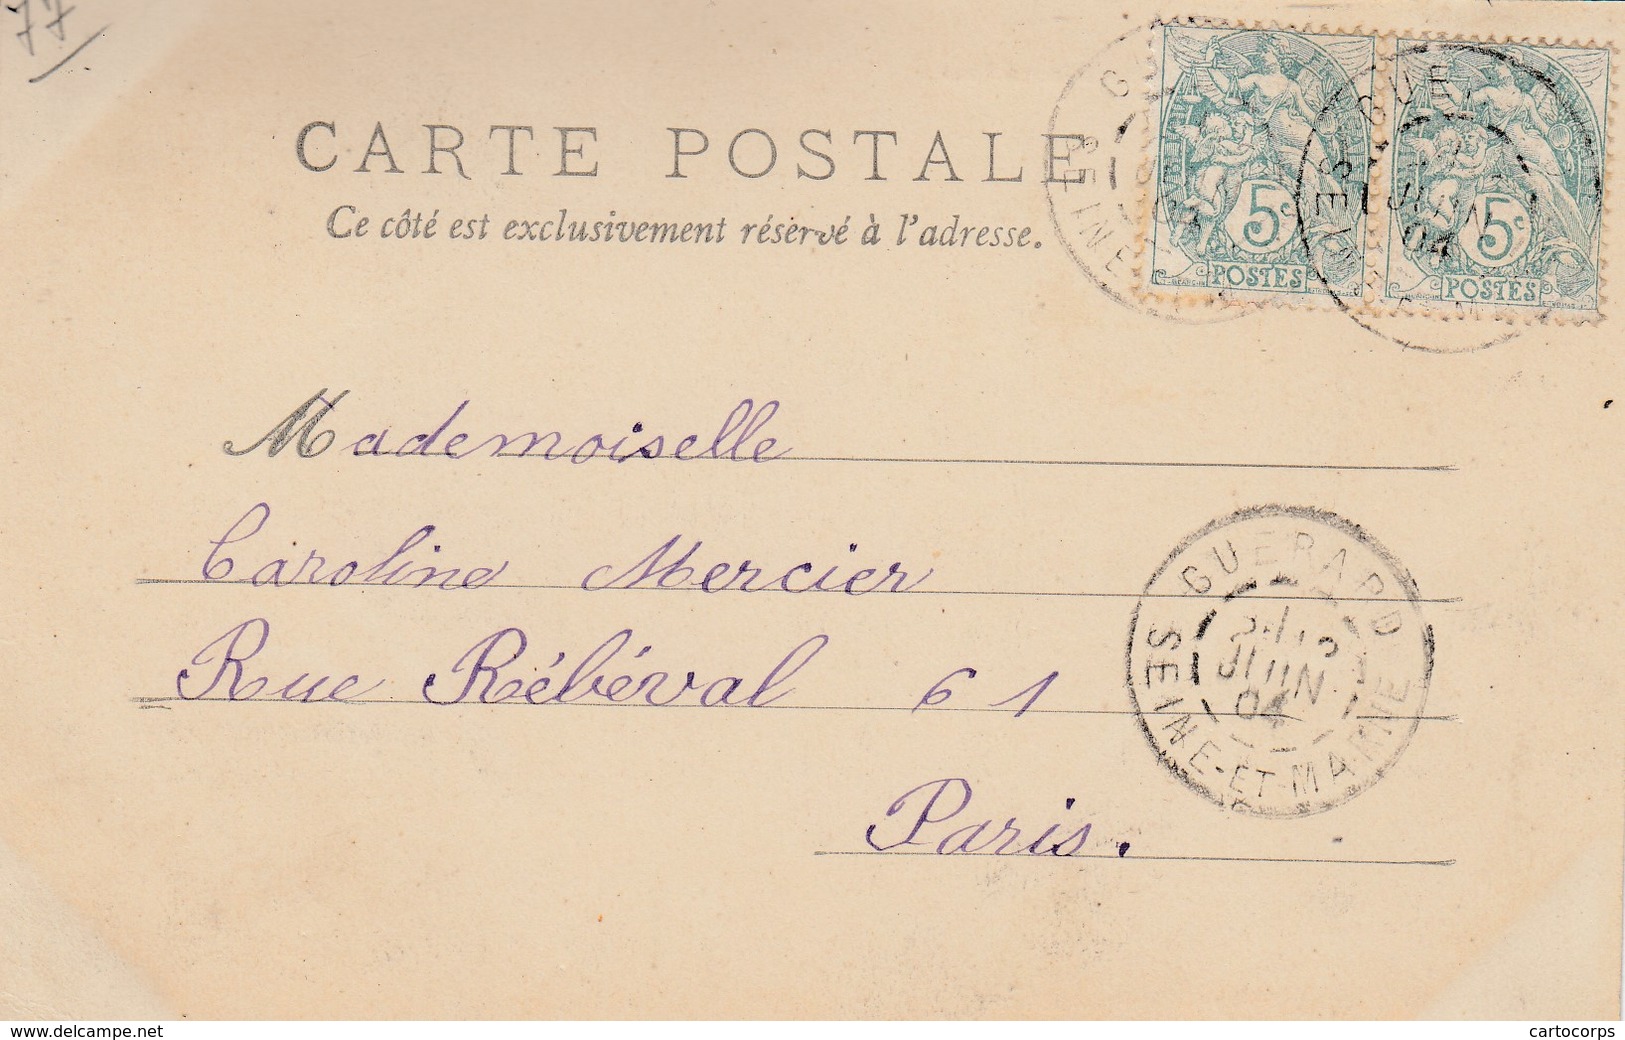 77
CARTE POSTALE
Ce côté est exclusivement réservé à l'adresse.
5c
POSTES
5c
POSTES
GUE
SEINE
JUIN
04
Mademoiselle
Caroline Mercier
Rue Rébéval 61
Paris.
GUERARD
JUIN
04
SEINE-ET-MARNE
www.delcampe.net
cartocorps